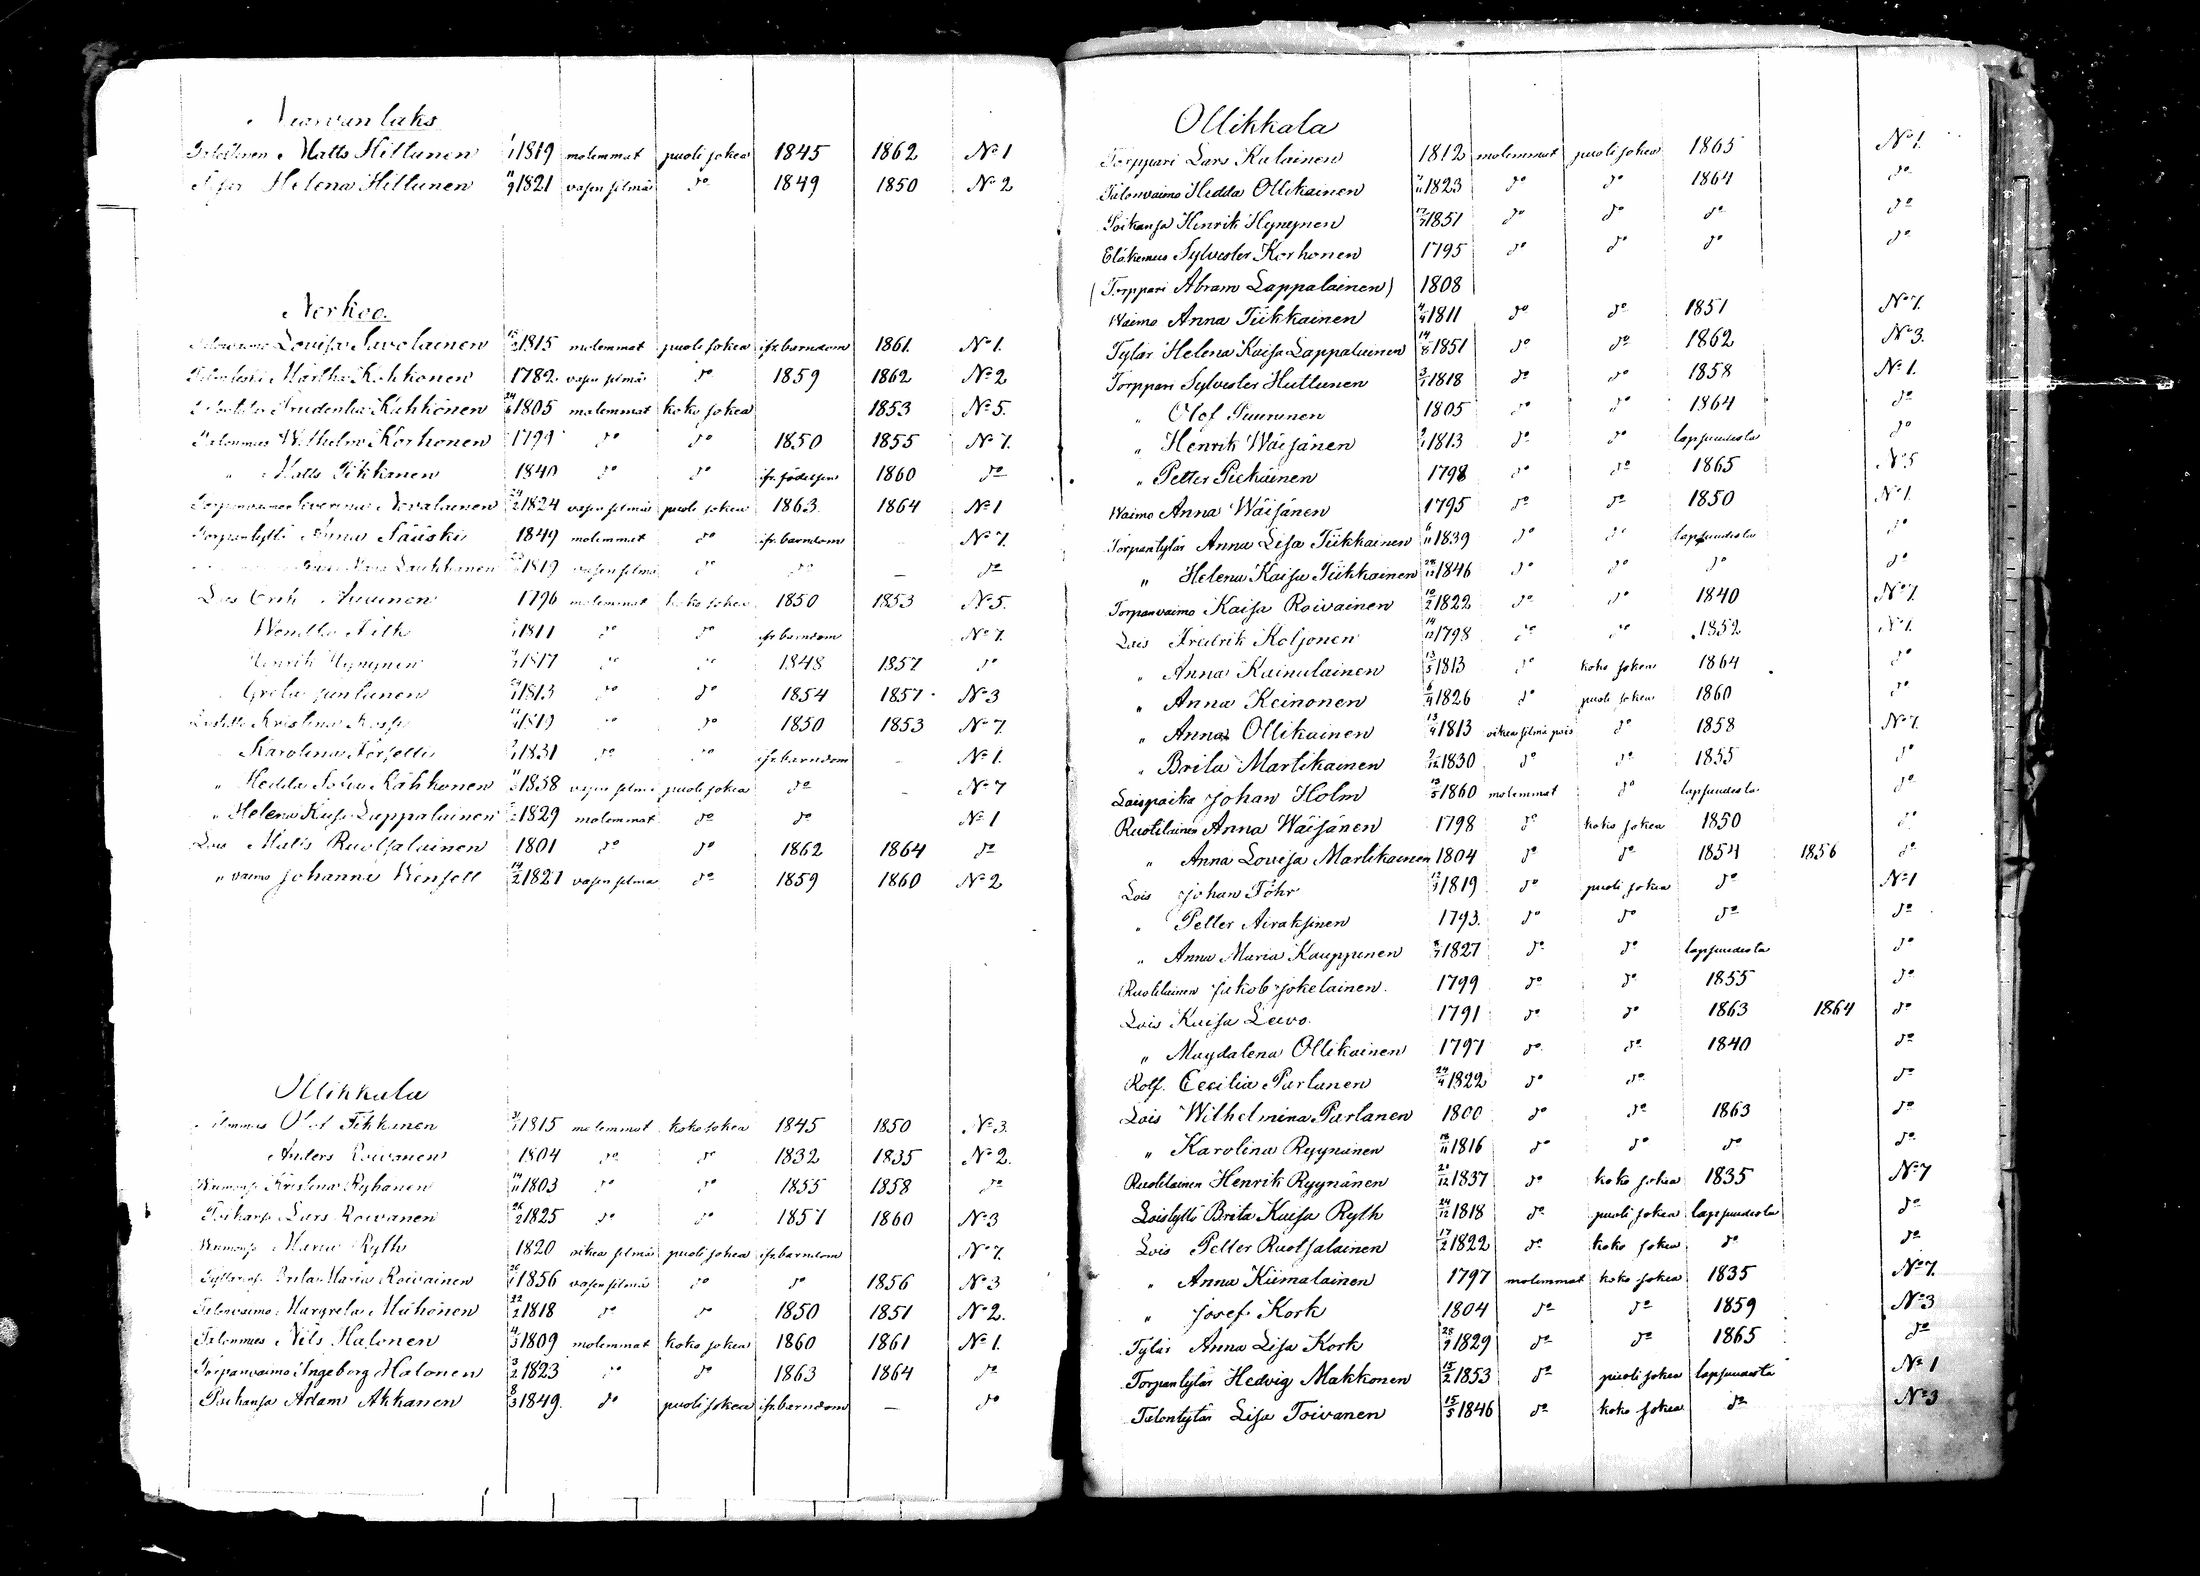 Matts Hiltunen 1/1 1819 molemmat puoli sokea 1845 1862 No 1
Helena Hiltunen 11/9 1821 vasen silmä do 1849 1850 No 2
Nerkoo.
Lovisa Savolainen 1815 molemmat puoli sokea ifr. barndom 1861 No 1.
Martha Kahkonen 1782 vasen silmä do 1859 1862 No 2
Prudentia Kähkönen 1805 molemmat koko sokea 1853 No 5.
Talonmies Wilhelm Korhonen do do 1850 1855 No 7.
" Matts Tikkanen 1840 do do ifr. födelsen 1860 do
1824 vasen silmä puoli sokea 1863 1864 No 1
Torpantyttö Anna Sääski 1849 molemmat do ifr. barndom No 7.
Laukkanen 1819 vasen silmä do do – do
Lois Erik 1796 molemmat koko sokea 1850 1853 No 5.
1811 do do ifr. barndom No 7.
Henrik Hynynen 1817 do do 1848 1857 do
Greta 1813 do do 1854 1857 No 3
Kristina 1819 do do 1850 1853 No 7.
Karolina 1831 do do ifr. barndom - No 1.
" Hedda Kähkönen 1838 vasen silmä puoli sokea do - No 7
" Helena Kaisa Lappalainen 1829 molemmat do do No 1
Lois Matts Ruotsalainen 1801 do do 1862 1864 do
" vaimo Johanna 1821 vasen silmä do 1859 1860 No 2
Ollikkala
Talonmies Olof Tikkanen 1815 molemmat koko sokea 1845 1850 No 3.
Anders Roivanen 1804 do do 1832 1835 No 2.
Kristina Ryhänen 14/11 1803 do do 1855 1858 do
Poikansa Lars Roivanen 26/2 1825 do do 1857 1860 No 3
Maria Ryth 1820 oikea silmä puoli sokea ifr. barndom No 7.
Brita Maria Roivainen 1856 vasen silmä do do 1856 No 3
Talonvaimo Margreta Miihönen 22/2 1818 do do 1850 1851 No 2.
Talonmies Nils Halonen 4/3 1809 molemmat koko sokea 1860 1861 No 1.
Torpanvaimo Ingeborg Halonen 3/2 1823 do do 1863 1864 do
Poikansa Adam Akkanen 8/3 1849. do puoli sokea ifr. barndom – do
Ollikkala
Torppari Lars Kulainen 1812 molemmat puoli sokea 1865 No 1.
Talonvaimo Hedda Ollikainen 1823 do do 1864 do
Poikansa Henrik Hynynen 1851 do do do do
Eläkemies Sylvester Korhonen 1795 do do do do
(Torppari Abram Lappalainen) 1808
Waimo Anna Tiikkainen 1811 do do 1851 No 7.
Tytär Helena Kaisa Lappalainen 14/8 1851 do do 1862 No 3.
Torppari Sylvester Huttunen 1818 do do 1858 No 1.
" Olof Tuurunen 1805 do do 1864 do
" Henrik Wäisänen 1813 do do lapsuudesta do
" Petter Pickäinen 1798 do do 1865 No 5
Waimo Anna Wäisänen 1795 do do 1850 No 1
Torpantytär Anna Lisa Tiikkainen 6/11 1839 do do lapsuudesta do
" Helena Kaisa Tiikkainen 1846 do do do do
Torpanvaimo Kaisa Roivainen 10/2 1822 do do 1840 No 7.
Lois Fredrik Koljonen 14/12 1798 do do 1852 No 1.
" Anna Kainulainen 13/5 1813 do koko sokea 1864 do
" Anna Keinonen 6/4 1826 do puoli sokea 1860 do
" Anna Ollikainen 13/4 1813 oikea silmä pois do 1858 No 7.
" Brita Martikainen 1830 do do 1855 do
Loispoika Johan Holm 13/5 1860 molemmat do lapsuudesta do
Ruotilainen Anna Wäisänen 1798 do koko sokea 1850 do
" Anna Lovisa Martikainen 1804 do do 1854 1856 do
Lois Johan Föhr 1819 do puoli sokea do No 1
" Petter Airaksinen 1793. do do do do
" Anna Maria Kauppinen 1827 do do lapsuudesta do
Ruotilainen Jakob Jokelainen. 1799 do do 1855 do
Lois Kaisa Leivo. 1791 do do 1863 1864 do
" Magdalena Ollikainen 1797 do do 1840 do
Rotf. Cecilia Partanen 24/4 1822 do do do
Lois Wilhelmina Partanen 1800 do do 1863 do
" Karolina Ryynänen 1816 do do do do
Ruotilainen Henrik Ryynänen 20/12 1837 do koko sokea 1835 No 7
Loistyttö Brita Kaisa Ryth 24/12 1818 do puoli sokea lapsuudesta do
Lois Petter Ruotsalainen 17/2 1822 do koko sokea do do
" Anna Kiimalainen 1797 molemmat koko sokea 1835 No 7.
" Josef Kork 1804 do do 1859 No 3
Tytär Anna Lisa Kork 28/7 1829 do do 1865 do
Torpantytär Hedvig Makkonen 15/2 1853 do puoli sokea lapsuudesta No 1
Talontytär Lisa Toivanen 15/5 1846 do koko sokea do No 3